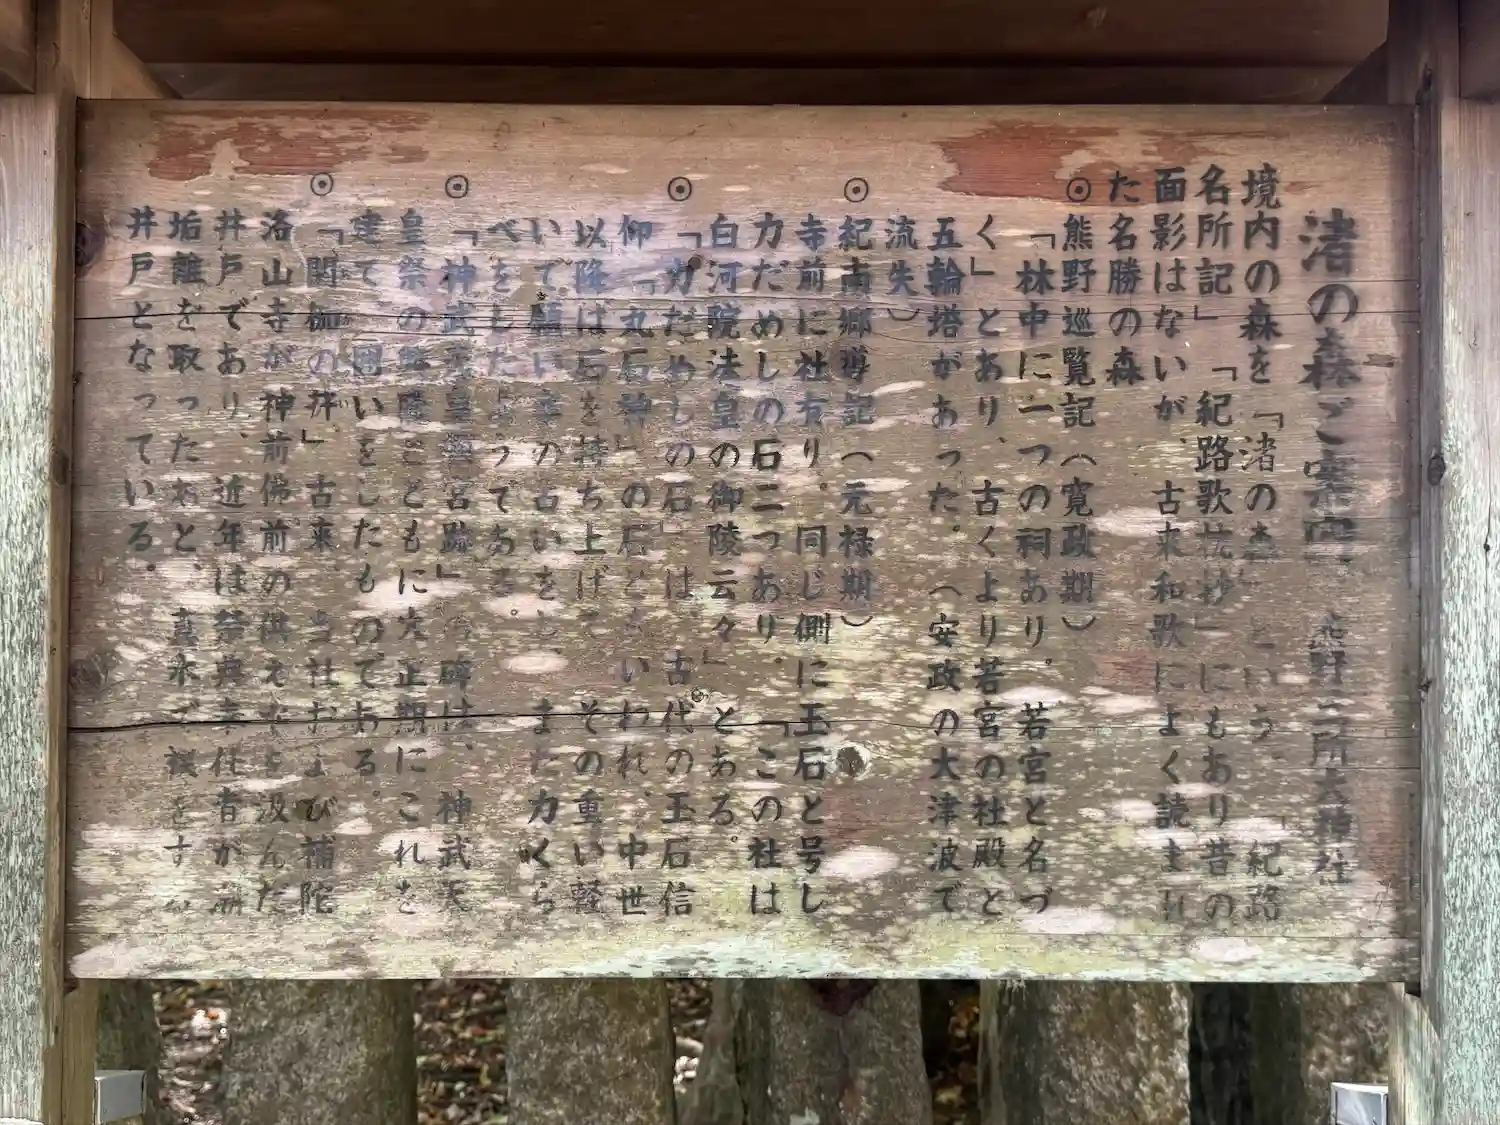 渚の森ご案内 熊野三所大神社
境内の森を「渚の森」という。「紀路
名所記」「紀路歌枕抄」にもあり昔の
面影はないが、古来和歌によく読まれ
た名勝の森
⊙熊野巡覧記（寛政期）
「林中に一つの祠あり。若宮と名づ
く」とあり、古くより若宮の社殿と
五輪塔があった。（安政の大津波で
流失）
⊙紀南郷導記（元禄期）
寺前に社有り。同じ側に玉石と号し
力だめしの石二つあり、「この社は
白河院法皇の御陵云々」とある。
⊙「力だめしの石」は、古代の玉石信
仰「丸石神」の石ともいわれ、中世
以降は石を持ち上げて、その重い軽
いで願い事の占いをし、また力くら
べをしたようである。
⊙「神武天皇頓宮跡」の碑は、神武天
皇祭の斎行とともに大正期にこれを
建て、囲いをしたものである。
⊙「閼伽の井」古来、当社および補陀
洛山寺が神前佛前の供え水を汲んだ
井戸であり、近年は祭典奉仕者が
垢離を取ったあと、真水で禊をする
井戸となっている。